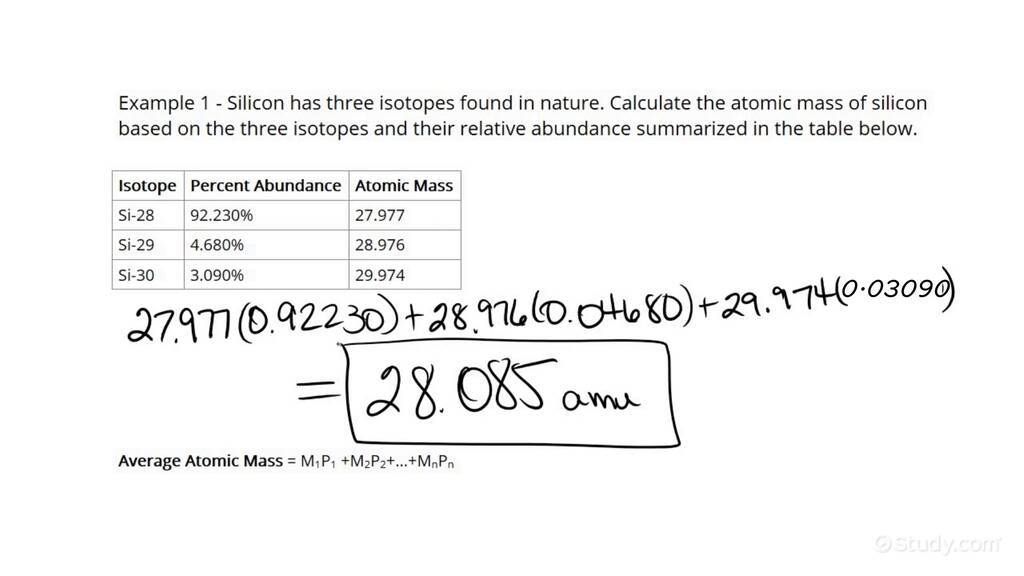 Example 1 - Silicon has three isotopes found in nature. Calculate the atomic mass of silicon
based on the three isotopes and their relative abundance summarized in the table below.
Isotope Percent Abundance Atomic Mass
Si-28 92.230% 27.977
Si-29 4.680% 28.976
Si-30 3.090% 29.974
27.977(0.92230)+28.976(0.04680)+29.974(0.03090)
= 28.085 amu
Average Atomic Mass = M₁P₁ +M₂P₂+...+MₙPₙ
Study.com